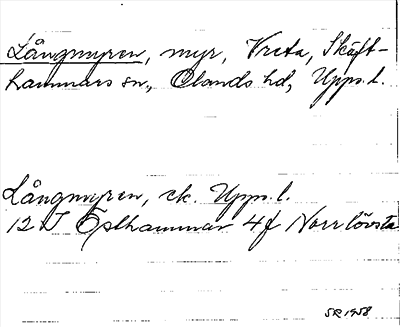 Långmyren, myr, Vreta, Skäft-
hammars sn, Olands hd, Upps. l.
Långmyren, ek. Upps. l.
12 I Östhammar 4f Norrlövsta
SR 1958